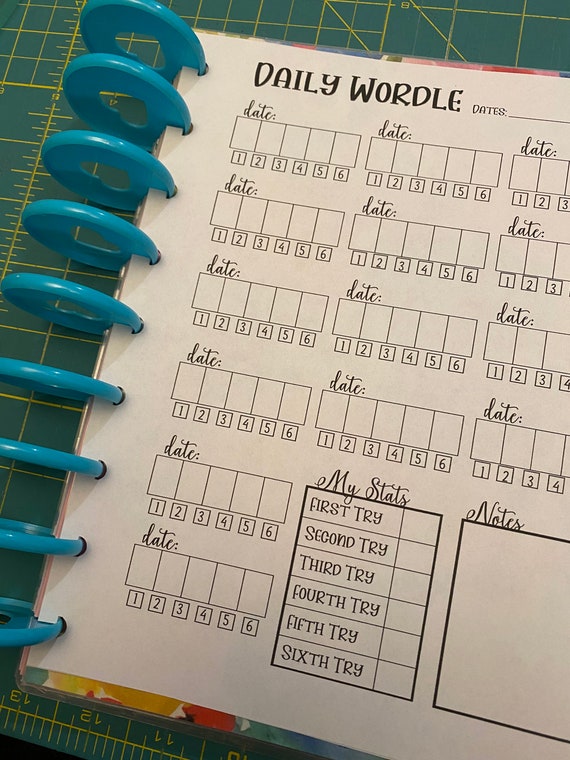 DAILY WORDLE DATES:
date: date: date:
1 2 3 4 5 6 1 2 3 4 5 6 1 2 3
date: date: date:
1 2 3 4 5 6 1 2 3 4 5 6 1 2 3
date: date: date:
1 2 3 4 5 6 1 2 3 4 5 6 1 2 3 4
date: date: date:
1 2 3 4 5 6 1 2 3 4 5 6 1 2 3 4
date:
1 2 3 4 5 6
date:
1 2 3 4 5 6
My Stats
FIRST TRY
SECOND TRY
THIRD TRY
FOURTH TRY
FIFTH TRY
SIXTH TRY
Notes
13 12 11 10